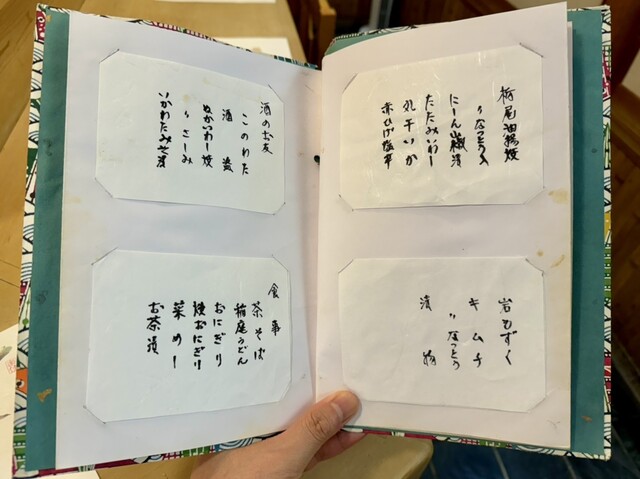 栃尾油揚焼
〃なっとう
にしん糀漬
たたみいわし
丸干いか
赤ひげ塩辛
岩もずく
キムチ
〃なっとう
漬物
酒のお友
このわた
酒盗
ぬかいわし焼
〃さしみ
いかわたみそ漬
食事
茶そば
稲庭うどん
おにぎり
焼おにぎり
菜めし
お茶漬